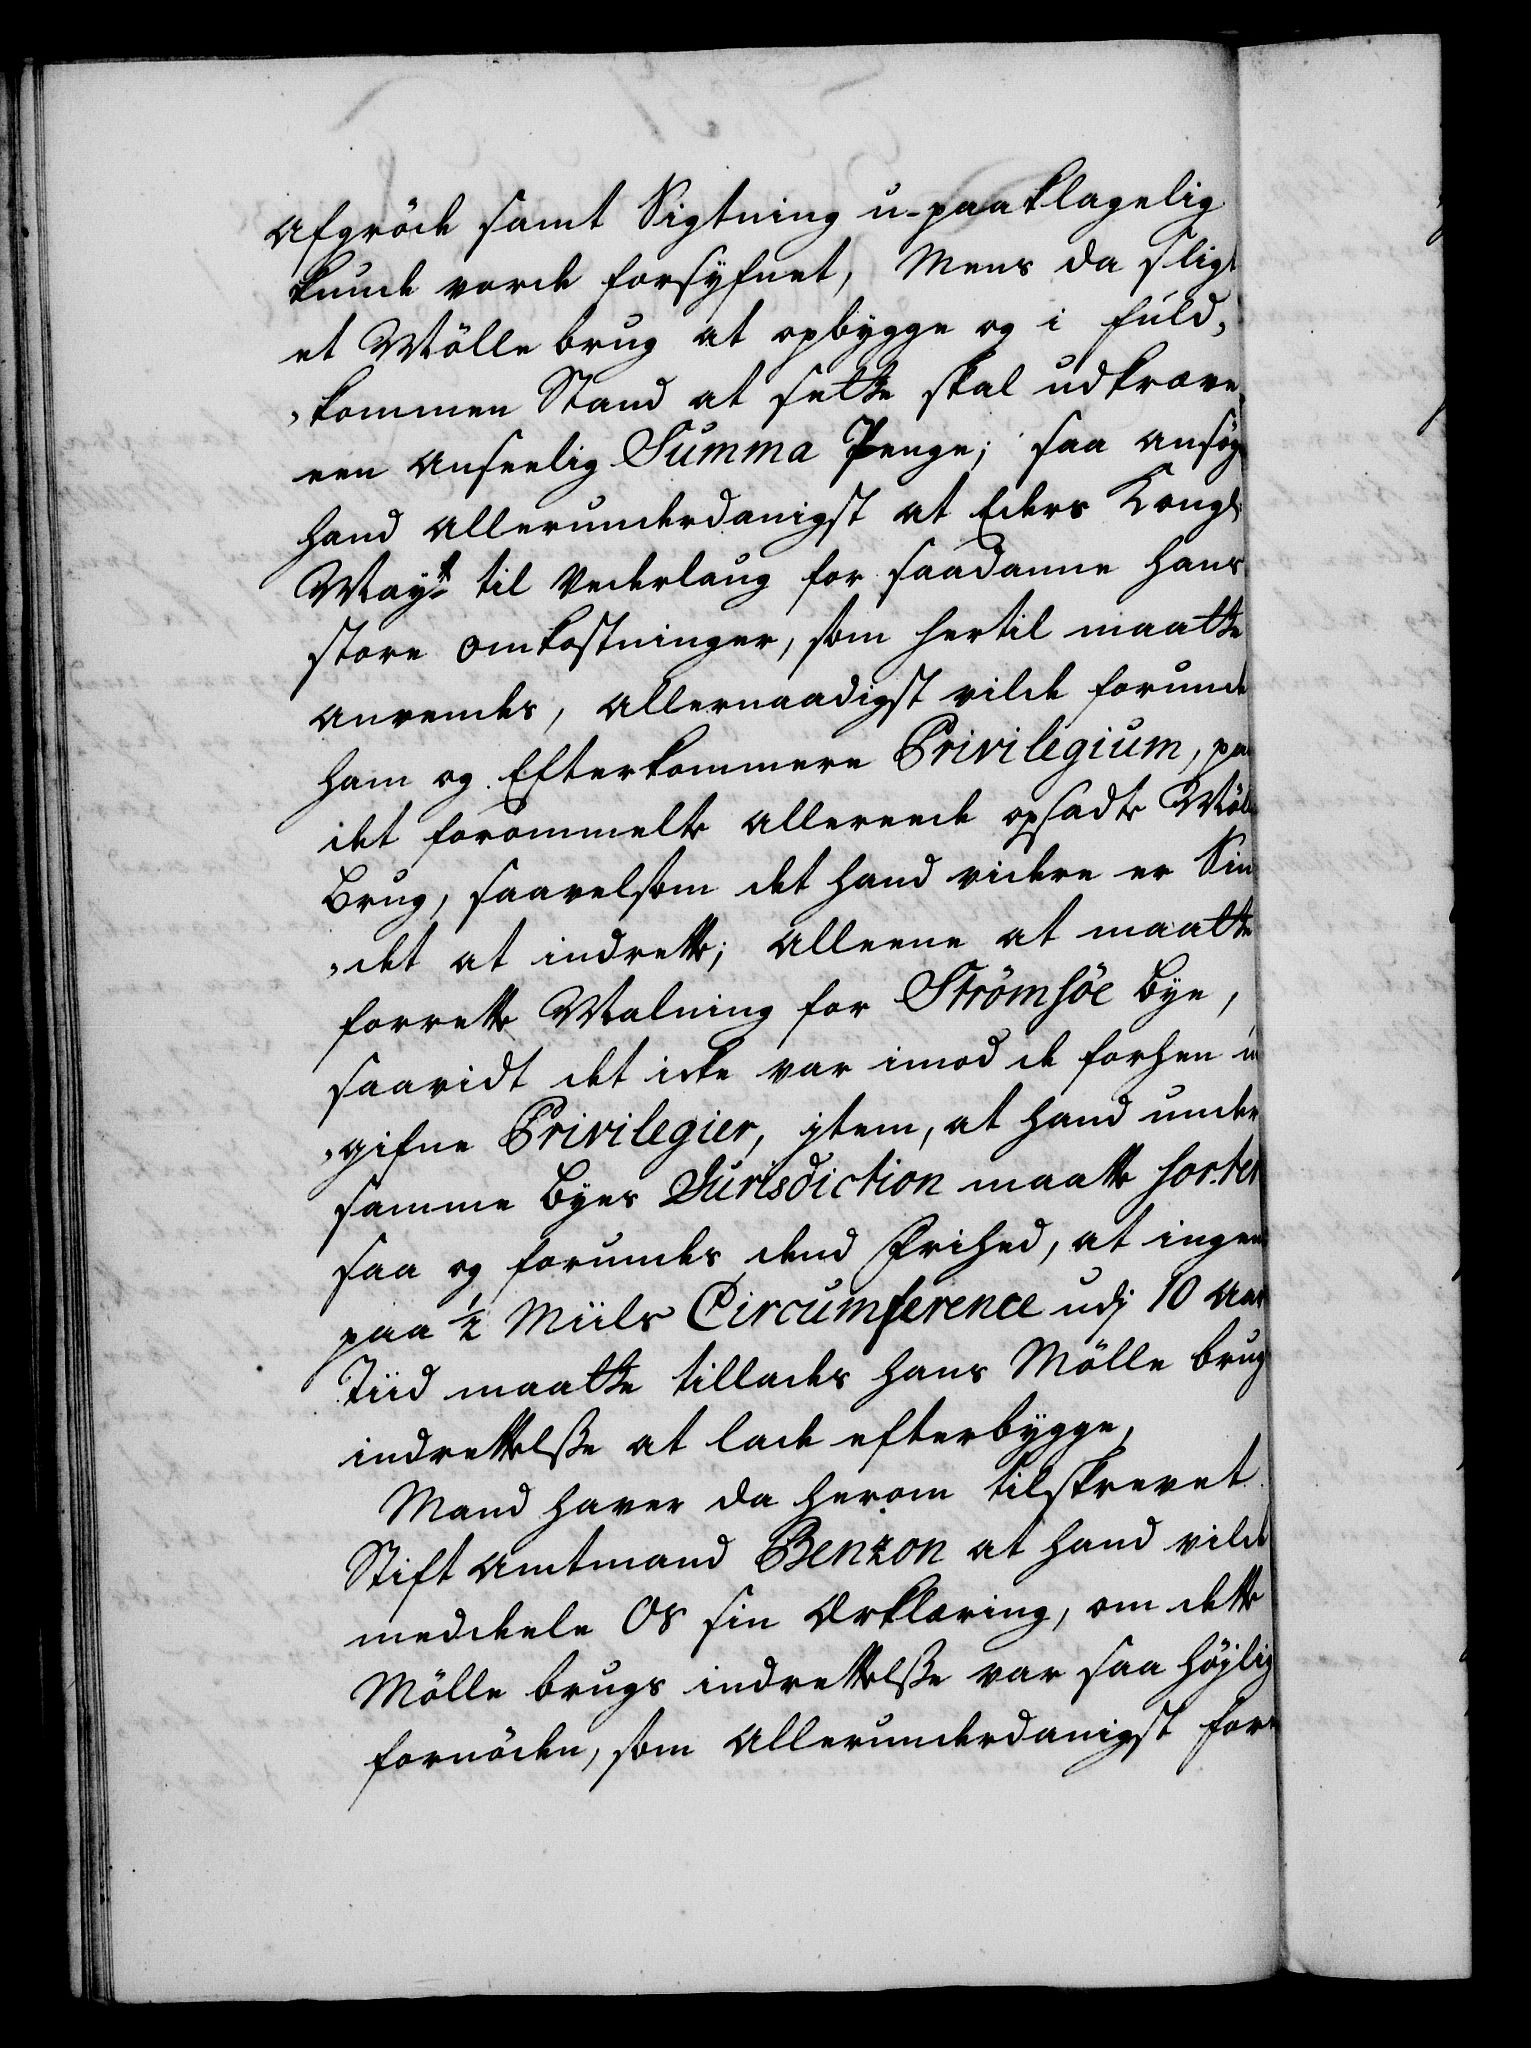 Afgröde samt Sigtning u-paaklagelig
kunde vorde forsÿfnet, Mens da sligt
et Mölle brug at opbygge og i fuld„
„kommen Stand at sette skal udkræve
een anseelig Summa Penge; saa ansøg
hand allerunderdanigst at Eders Kongl:
May:t til Vederlaug for saadanne hans
store omkostninger, som hertil maatte
anvendes, allernaadigst vilde forunde
ham og Efterkommere Privilegium, paa
det forommelte allereede opsadte Mölle
Brug, saavelsom det hand videre er Sin
„det at indrette; alleene at maatte
forrette Malning for Strömsöe bÿe,
saavidt det icke var imod de forhen u
„gifne Privilegier, jtem, at hand under
samme Byes Jurisdiction maatte sortere
saa og forundes dend Frihed, at ingen
paa ½ Miils Circumference udj 10 Aar
Tiid maatte tillades hans Mölle brug
indrettelsse at lade efterbygge,
Mand haver da herom tilskrevet
Stift Amtmand Benzon at hand vilde
meddeele Os sin Erklæring, om dette
Mölle brugs indrettelsse var saa höjlig
fornöden, som allerunderdanigst fore